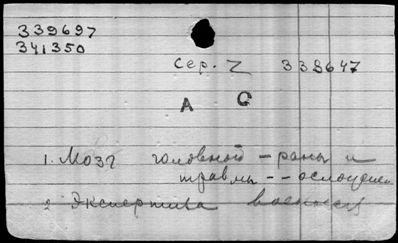 339697
341350
сер. Z 338647
А С
1. Мозг головной - раны и
травмы -- ослож
2 Экспертиза военная